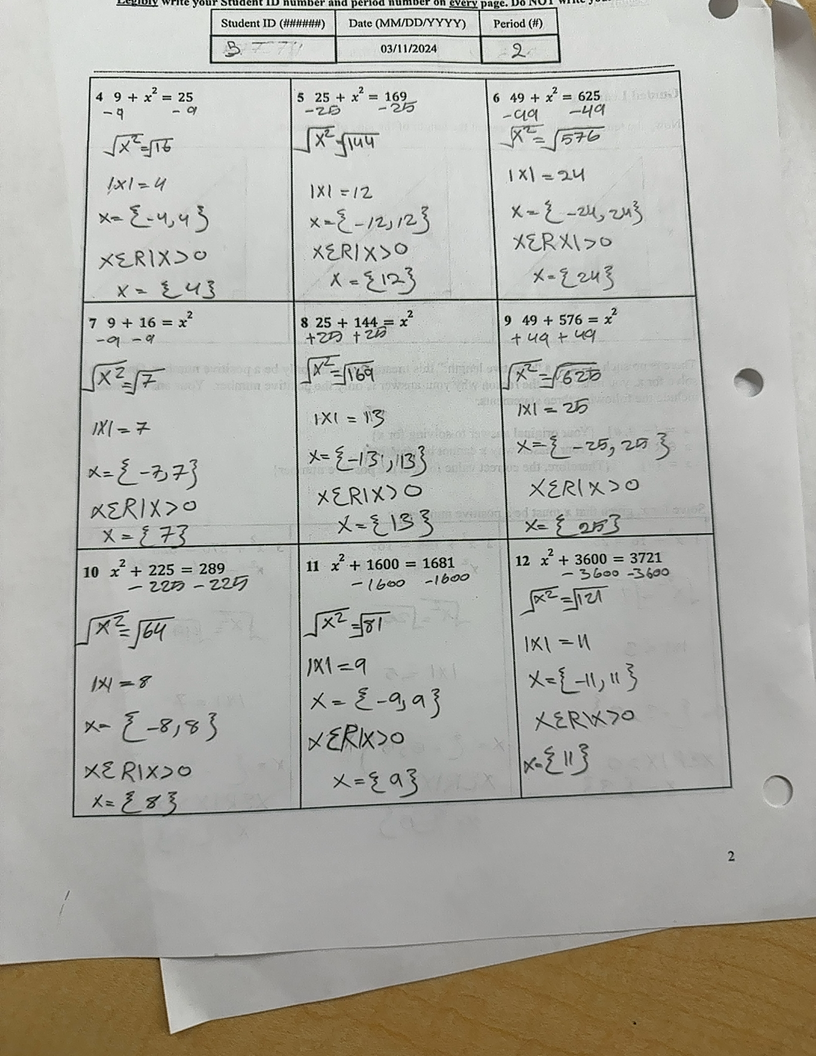 Legibly write your Student ID number and period number on every page. Do NOT write
Student ID (######) Date (MM/DD/YYYY) Period (#)
03/11/2024 2
4 9 + x² = 25
-9 -9
√x² = √16
|x| = 4
x = {-4, 4}
xƐR|x>0
x = {4}
5 25 + x² = 169
-25 -25
√x² = √144
|x| = 12
x = {-12, 12}
xƐR|x>0
x = {12}
6 49 + x² = 625
-49 -49
√x² = √576
|x| = 24
x = {-24, 24}
xƐRX|>0
x = {24}
7 9 + 16 = x²
-9 -9
√x² = √7
|x| = 7
x = {-7, 7}
xƐR|x>0
x = {7}
8 25 + 144 = x²
+25 +25
√x² = √169
|x| = 13
x = {-13, 13}
xƐR|x>0
x = {13}
9 49 + 576 = x²
+49 +49
√x² = √625
|x| = 25
x = {-25, 25}
xƐR|x>0
x = {25}
10 x² + 225 = 289
-225 -225
√x² = √64
|x| = 8
x = {-8, 8}
xƐR|x>0
x = {8}
11 x² + 1600 = 1681
-1600 -1600
√x² = √81
|x| = 9
x = {-9, 9}
xƐR|x>0
x = {9}
12 x² + 3600 = 3721
-3600 -3600
√x² = √121
|x| = 11
x = {-11, 11}
xƐR|x>0
x = {11}
2